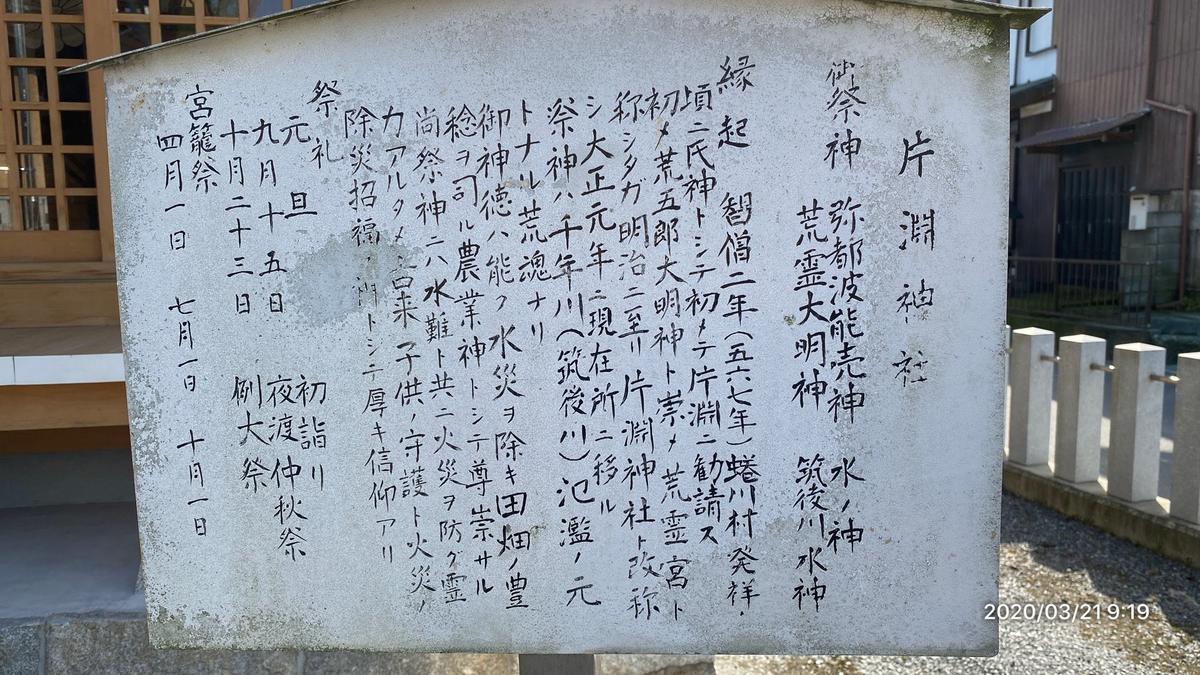 片淵神社
御祭神 弥都波能売神 水ノ神
荒霊大明神 筑後川水神
縁起 智僧二年(五六七年)蜷川村発祥
頃ニ氏神トシテ初メテ片淵ニ勧請ス
初メ荒五郎大明神ト崇メ荒霊宮ト
称シタガ明治ニ至リ片淵神社ト改称
シ大正元年ニ現在所ニ移ル
祭神ハ千年川(筑後川)氾濫ノ元
トナル荒魂ナリ
御神徳ハ能ク水災ヲ除キ田畑ノ豊
稔ヲ司ル農業神トシテ尊崇サル
尚祭神ニハ水難ト共ニ火災ヲ防グ霊
力アルタメ古来子供ノ守護ト火災ノ
除災招福ノ門トシテ厚キ信仰アリ
祭礼
元旦 初詣リ
九月十五日 夜渡仲秋祭
十月二十三日 例大祭
宮籠祭
四月一日 七月一日 十月一日
2020/03/21 9:19